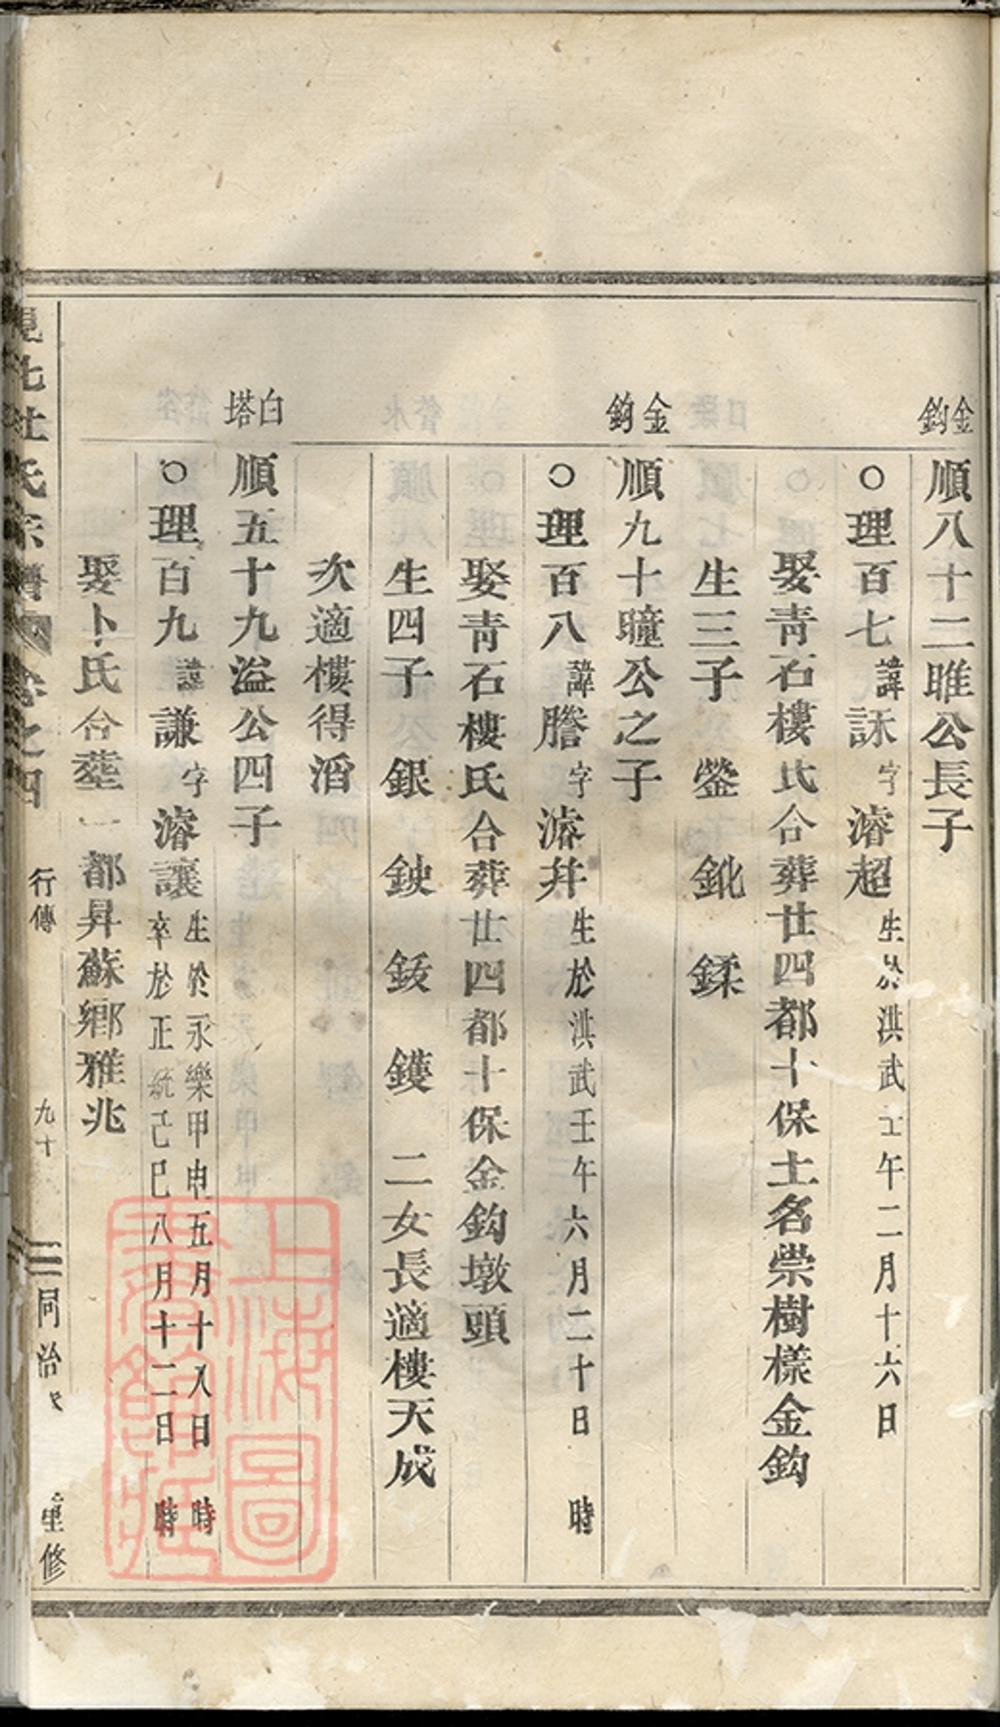 金鈎
順八十二睢公長子
○理百七諱訸字濬超生於洪武壬午二月十六日
娶青石樓氏合葬廿四都十保土名崇樹樣金鈎
生三子 鎣 鈋 鍒
金鈎
順九十瞳公之子
○理百八諱謄字濬并生於洪武壬午六月二十日 時
娶青石樓氏合葬廿四都十保金鈎墩頭
生四子 銀 鉂 鈸 鑊 二女長適樓天成
次適樓得滔
白塔
順五十九溢公四子
○理百九諱謙字濬讓生於永樂甲申五月十八日 時
卒於正統己巳八月十二日 時
娶卜氏合葬一都昇蘇鄉雅兆
杜氏宗譜 卷之四 行傳 九十 同治 重修
上海圖書館藏